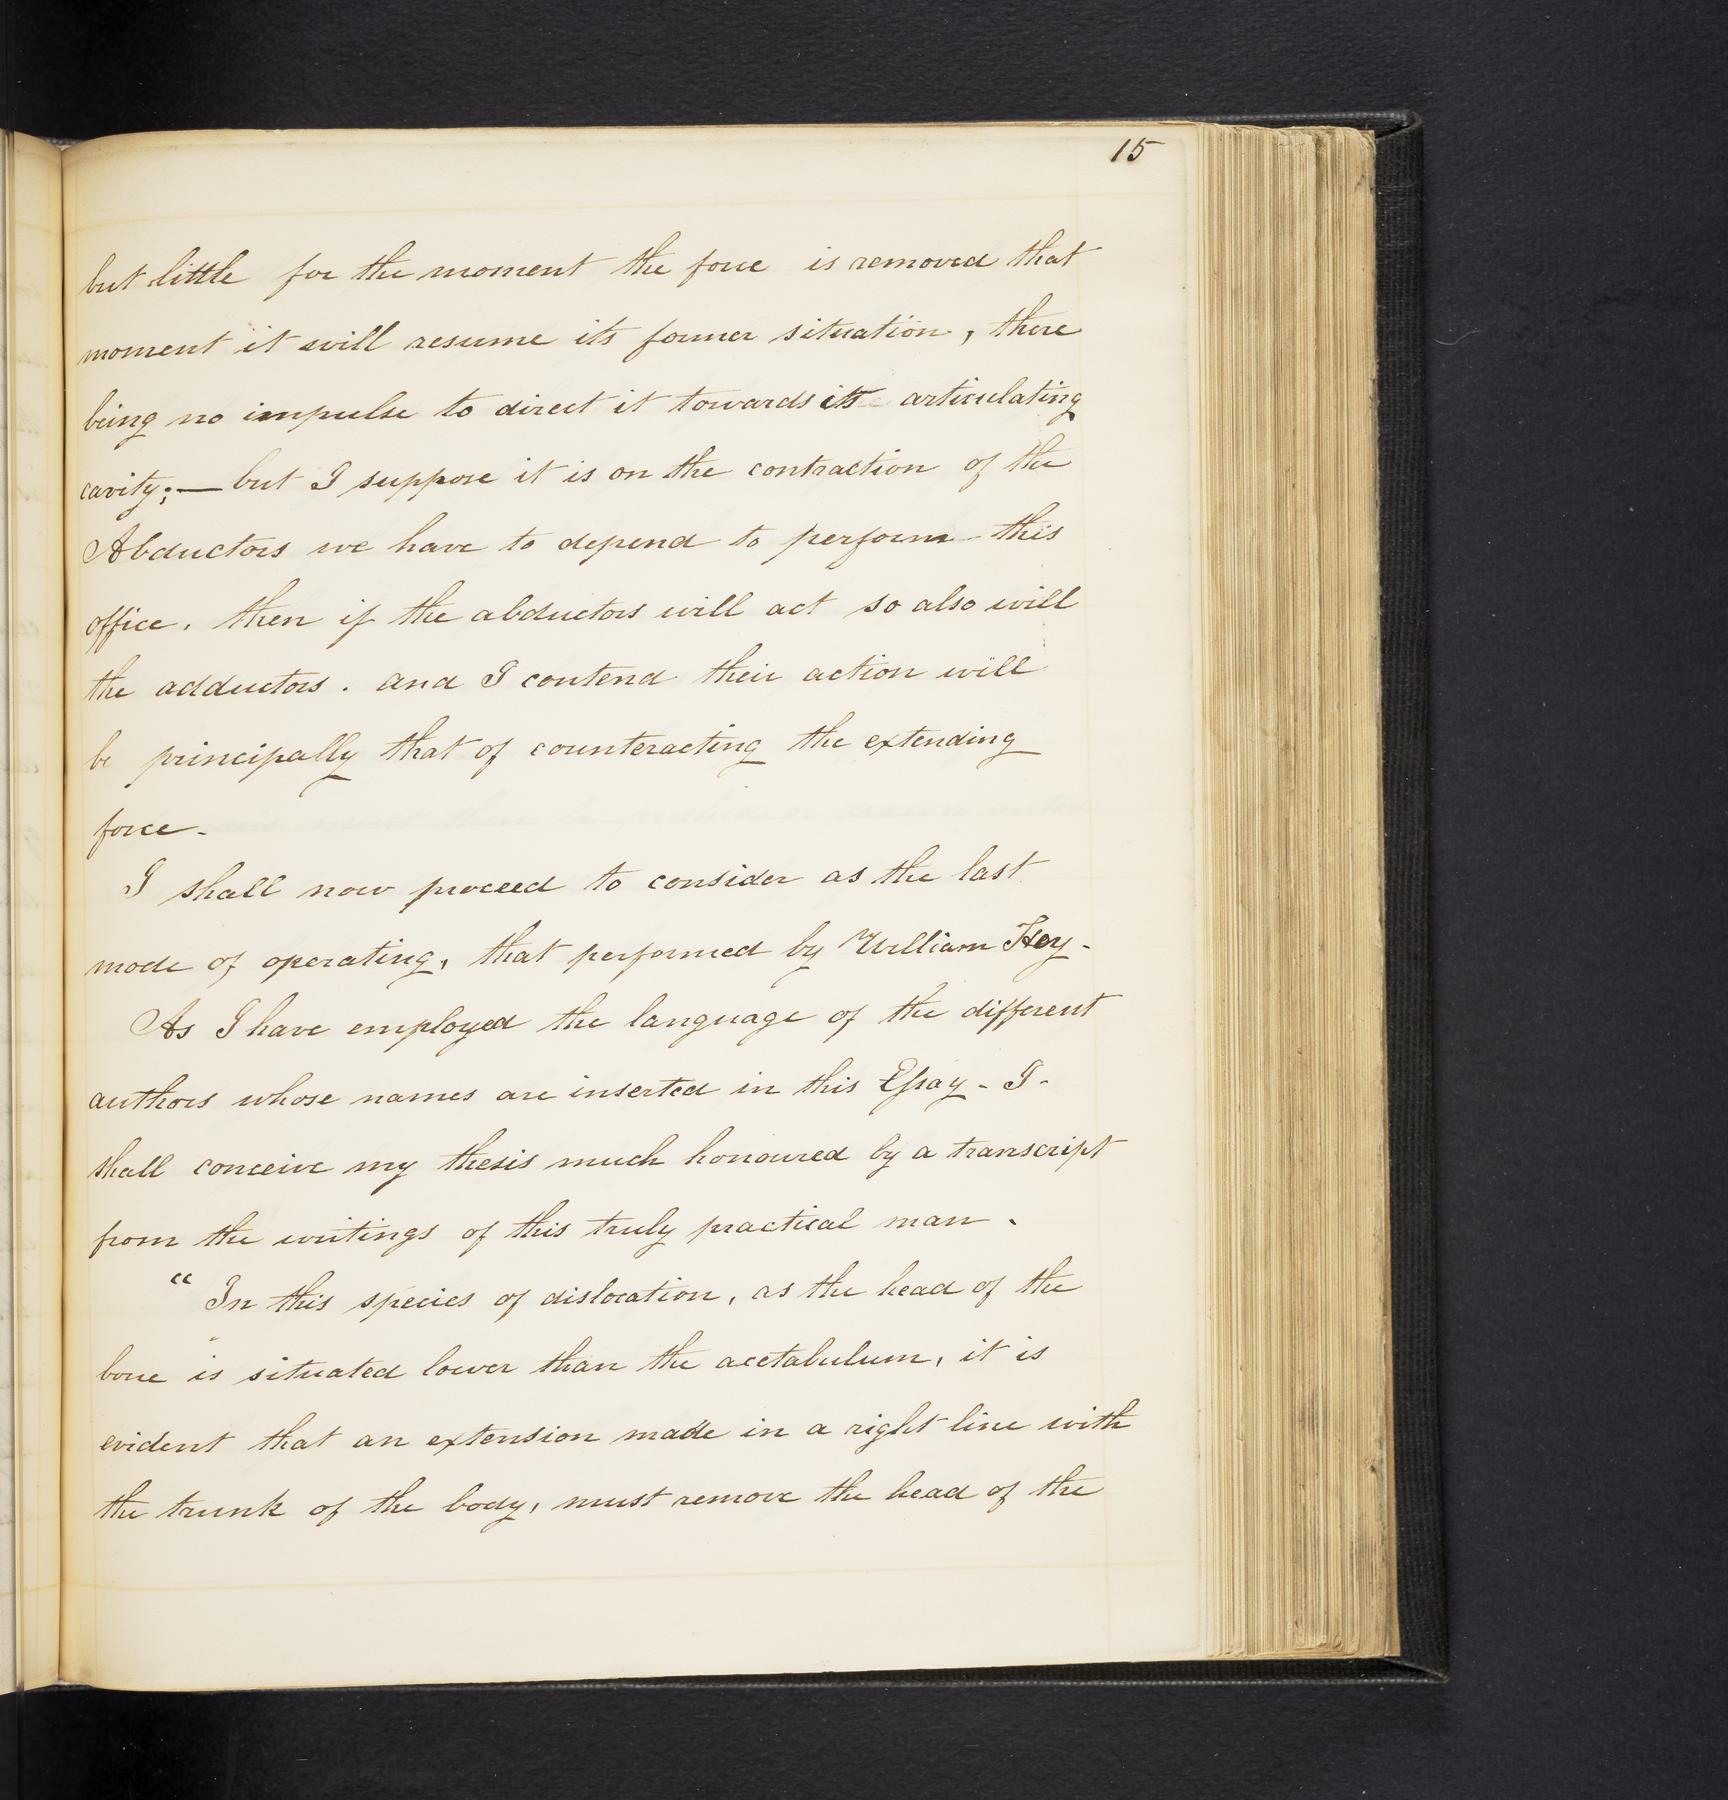 15
but little for the moment the force is removed that
moment it will resume its former situation, there
being no impulse to direct it towards its articulating
cavity; — but I suppose it is on the contraction of the
Abductors we have to depend to perform this
office. then if the abductors will act so also will
the adductors. and I contend their action will
be principally that of counteracting the extending
force.
I shall now proceed to consider as the last
mode of operating, that performed by William Hey.
As I have employed the language of the different
authors whose names are inserted in this Eſsay - I -
shall conceive my thesis much honoured by a transcript
from the writings of this truly practical man.
“ In this species of dislocation, as the head of the
bone is situated lower than the acetabulum, it is
evident that an extension made in a right line with
the trunk of the body, must remove the head of the